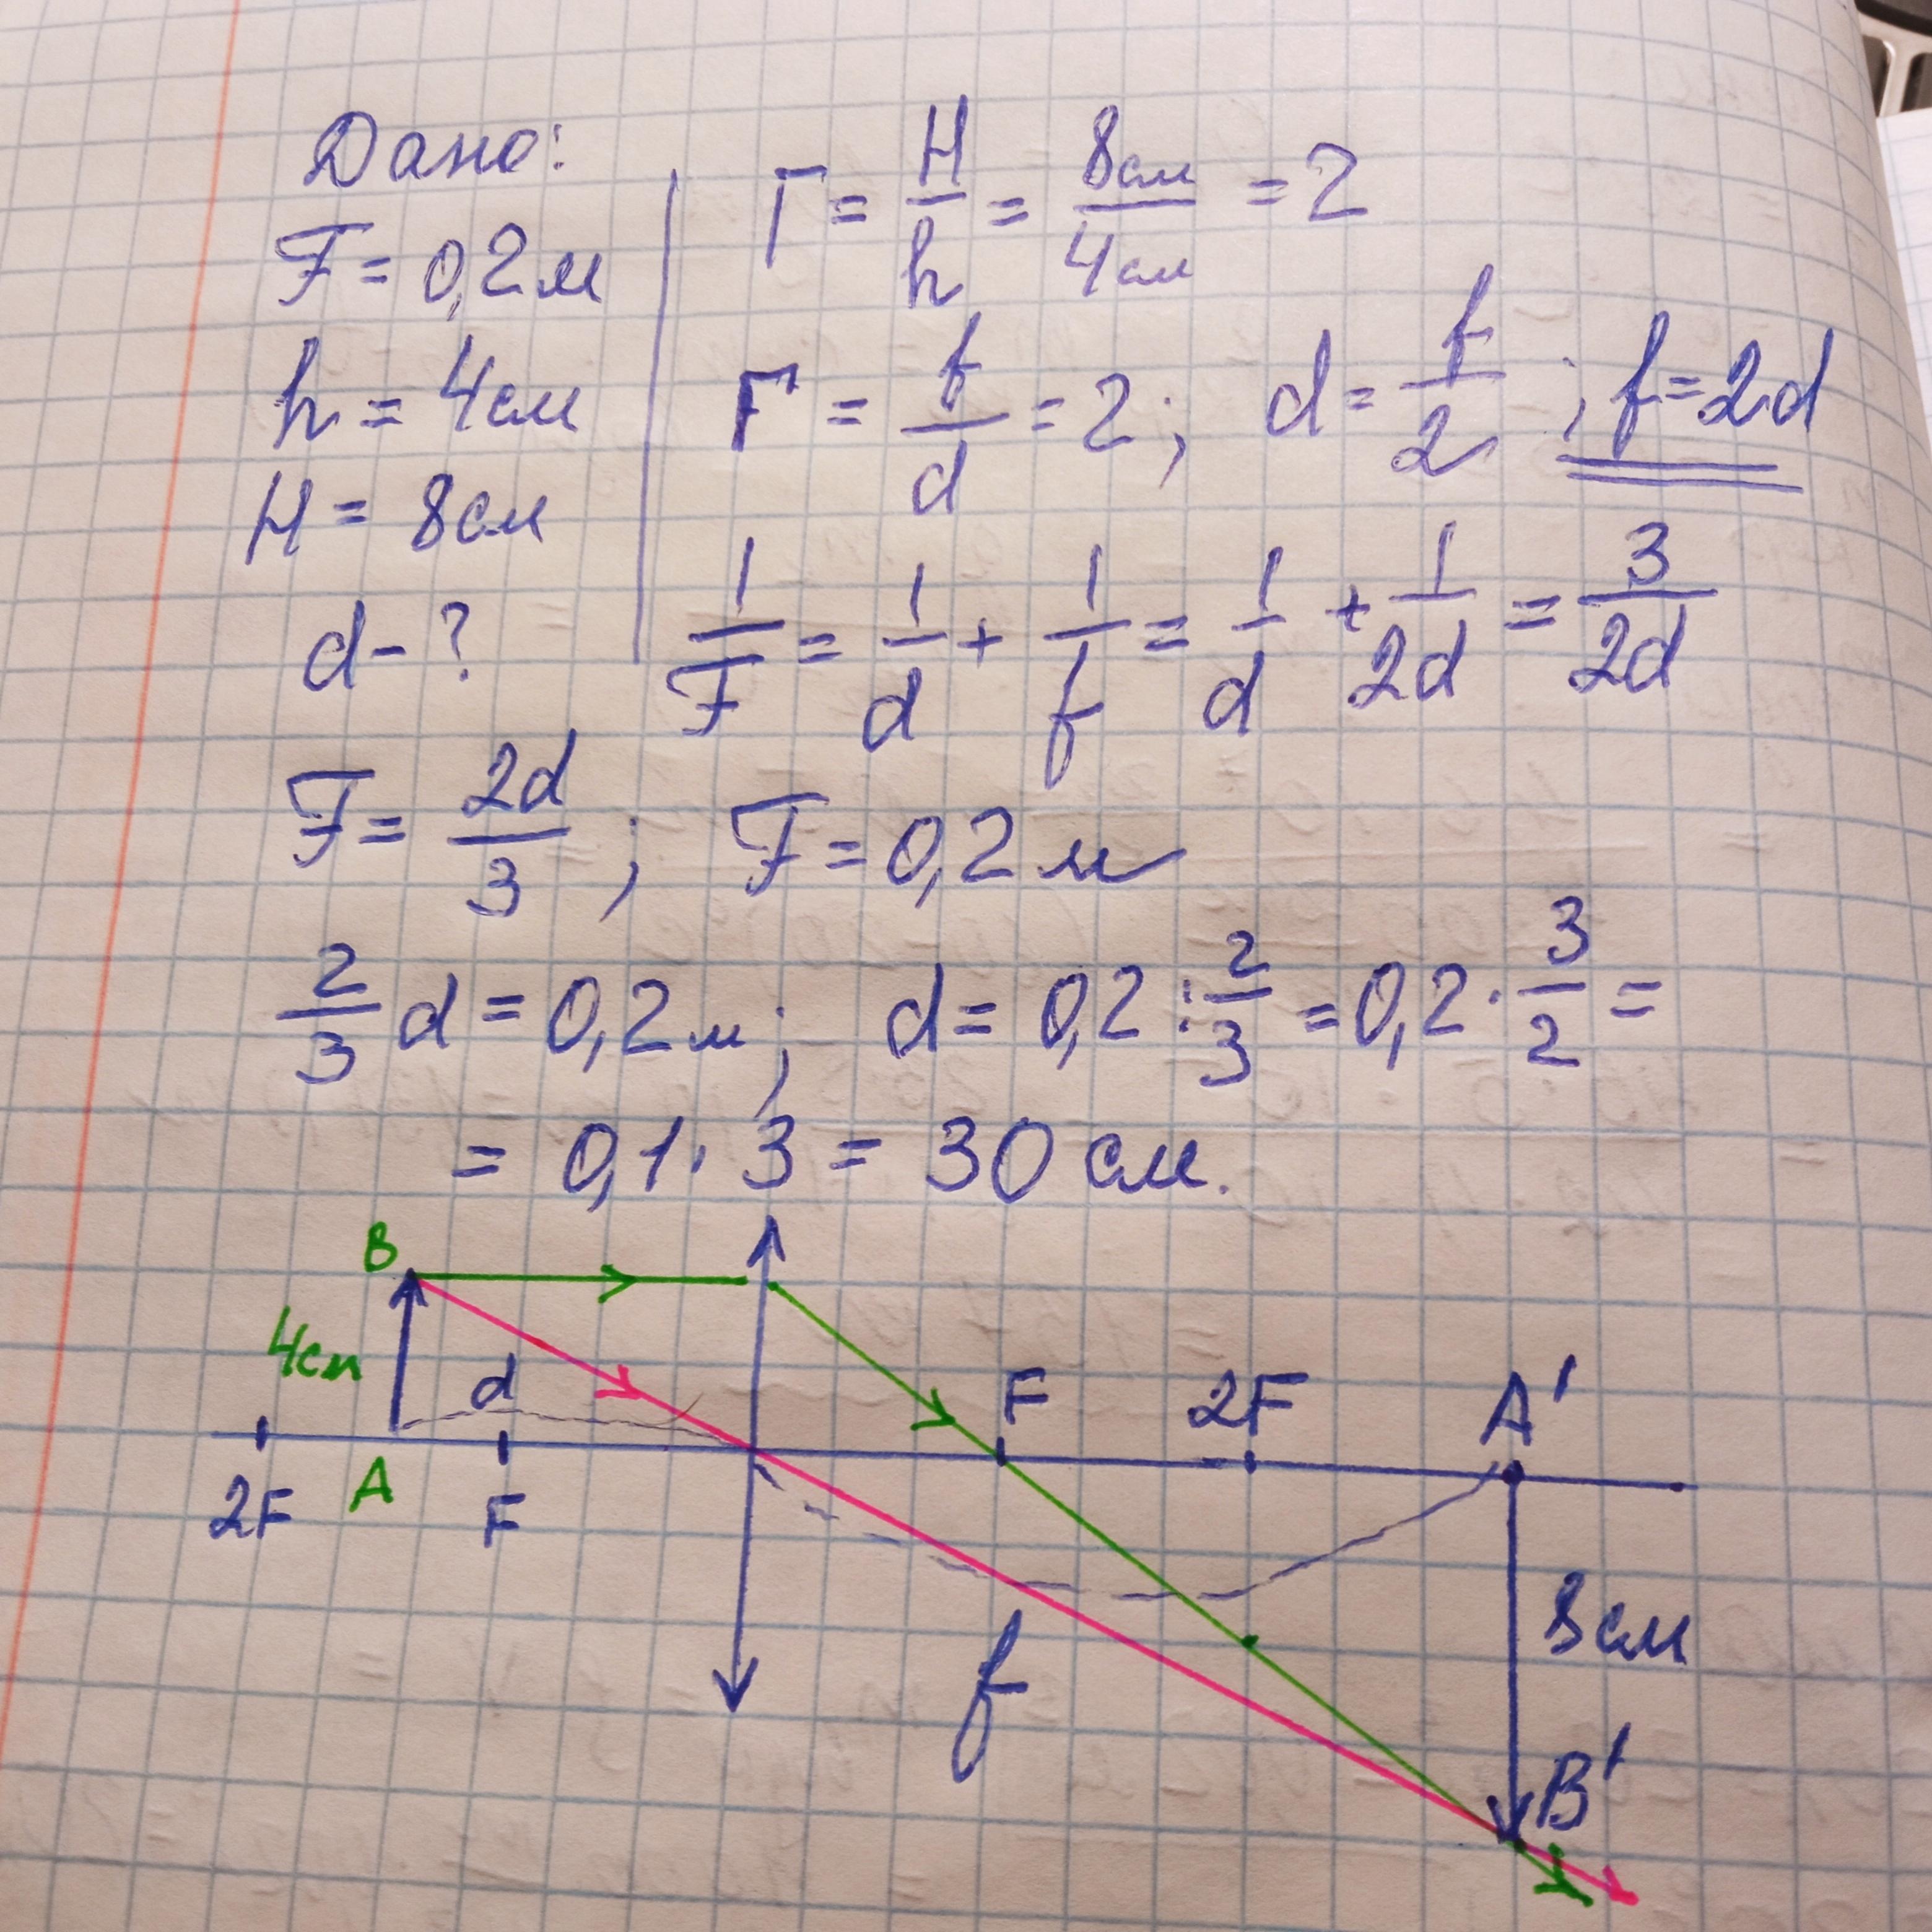 Дано:
F = 0,2 м
h = 4 см
H = 8 см
d - ?
Г = H/h = 8 см/4 см = 2
Г = f/d = 2; d = f/2; f = 2d
1/F = 1/d + 1/f = 1/d + 1/2d = 3/2d
F = 2d/3; F = 0,2 м
2/3 d = 0,2 м; d = 0,2 : 2/3 = 0,2 · 3/2 =
= 0,1 · 3 = 30 см.
B
4 см
d
F
2F
A'
2F
A
F
f
8 см
B'